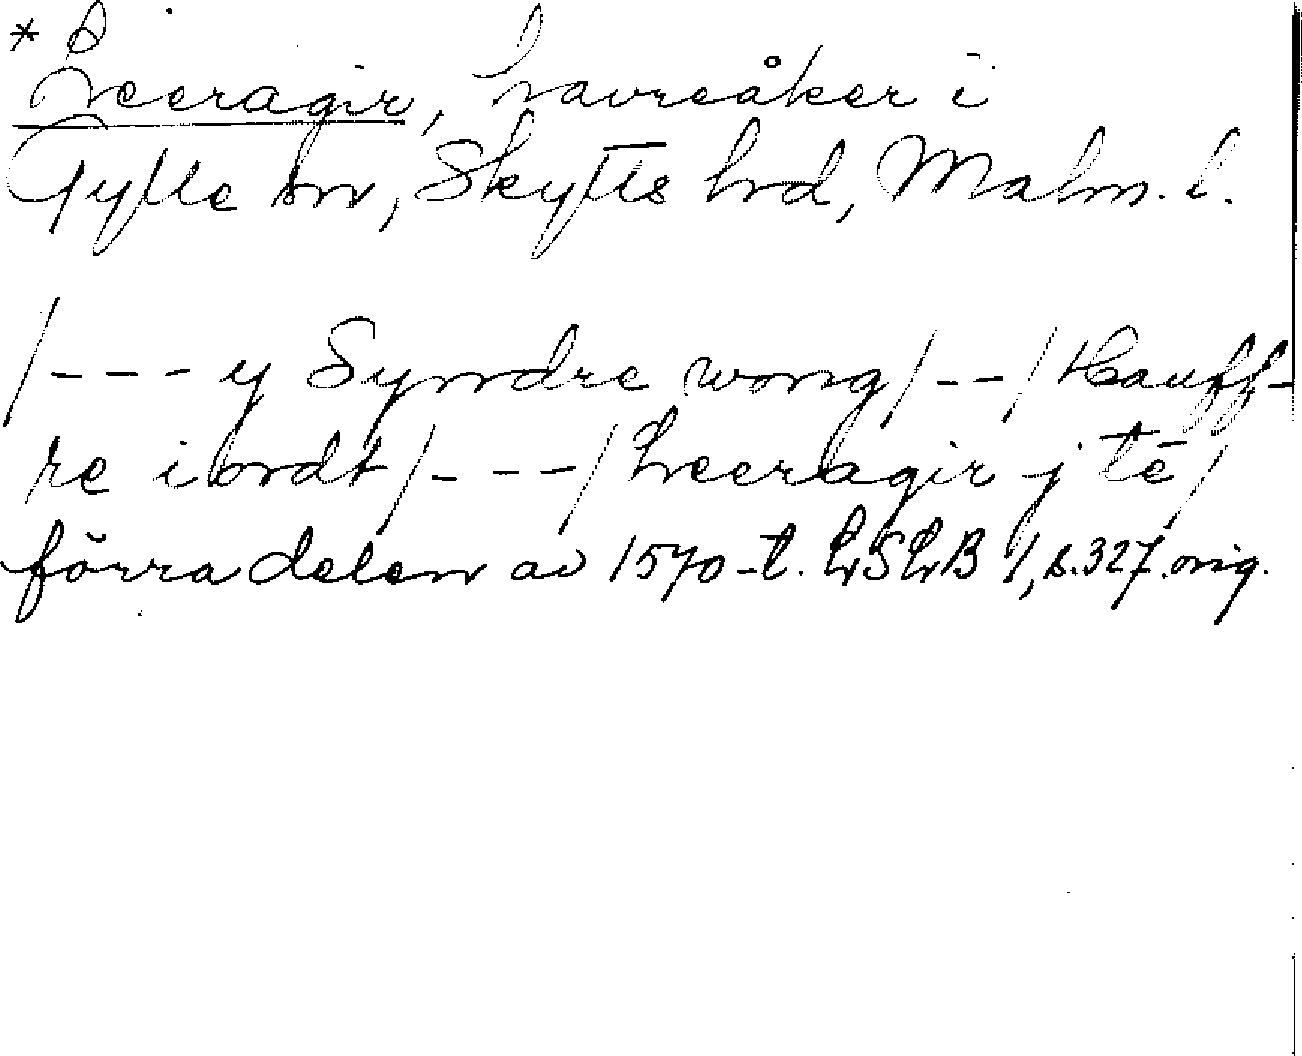 * Leeragir, havreåker i
Gylle sn, Skytts hd, Malm. l.
/--- y Syndre wong/--/Hauff-
re iordt/---/Leeragir j tē/
förra delen av 1570-t. LSLB 1, s.327. orig.